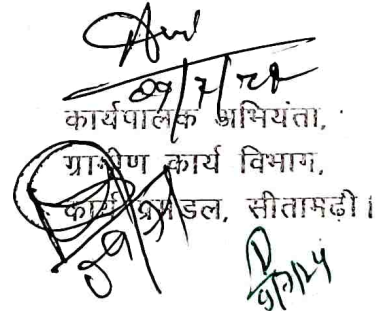 09/7/24
कार्यपालक अभियंता,
ग्रामीण कार्य विभाग,
कार्य प्रमंडल, सीतामढ़ी।
9/7/24